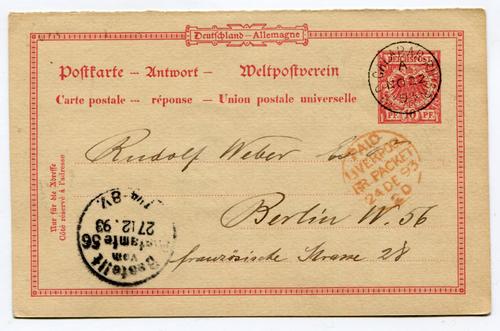 Deutschland - Allemagne
Postkarte - Antwort - Weltpostverein
Carte postale - réponse - Union postale universelle
REICHSPOST
PF. 10 PF.
A
22
Nur für die Adresse
Côté réservé à l'adresse
Rudolf Weber
PAID
LIVERPOOL
BR. PACKET
24 DE 93
Berlin W. 56
französische Strasse 28
Bestellt
vom
Postamte 56
27 12. 93